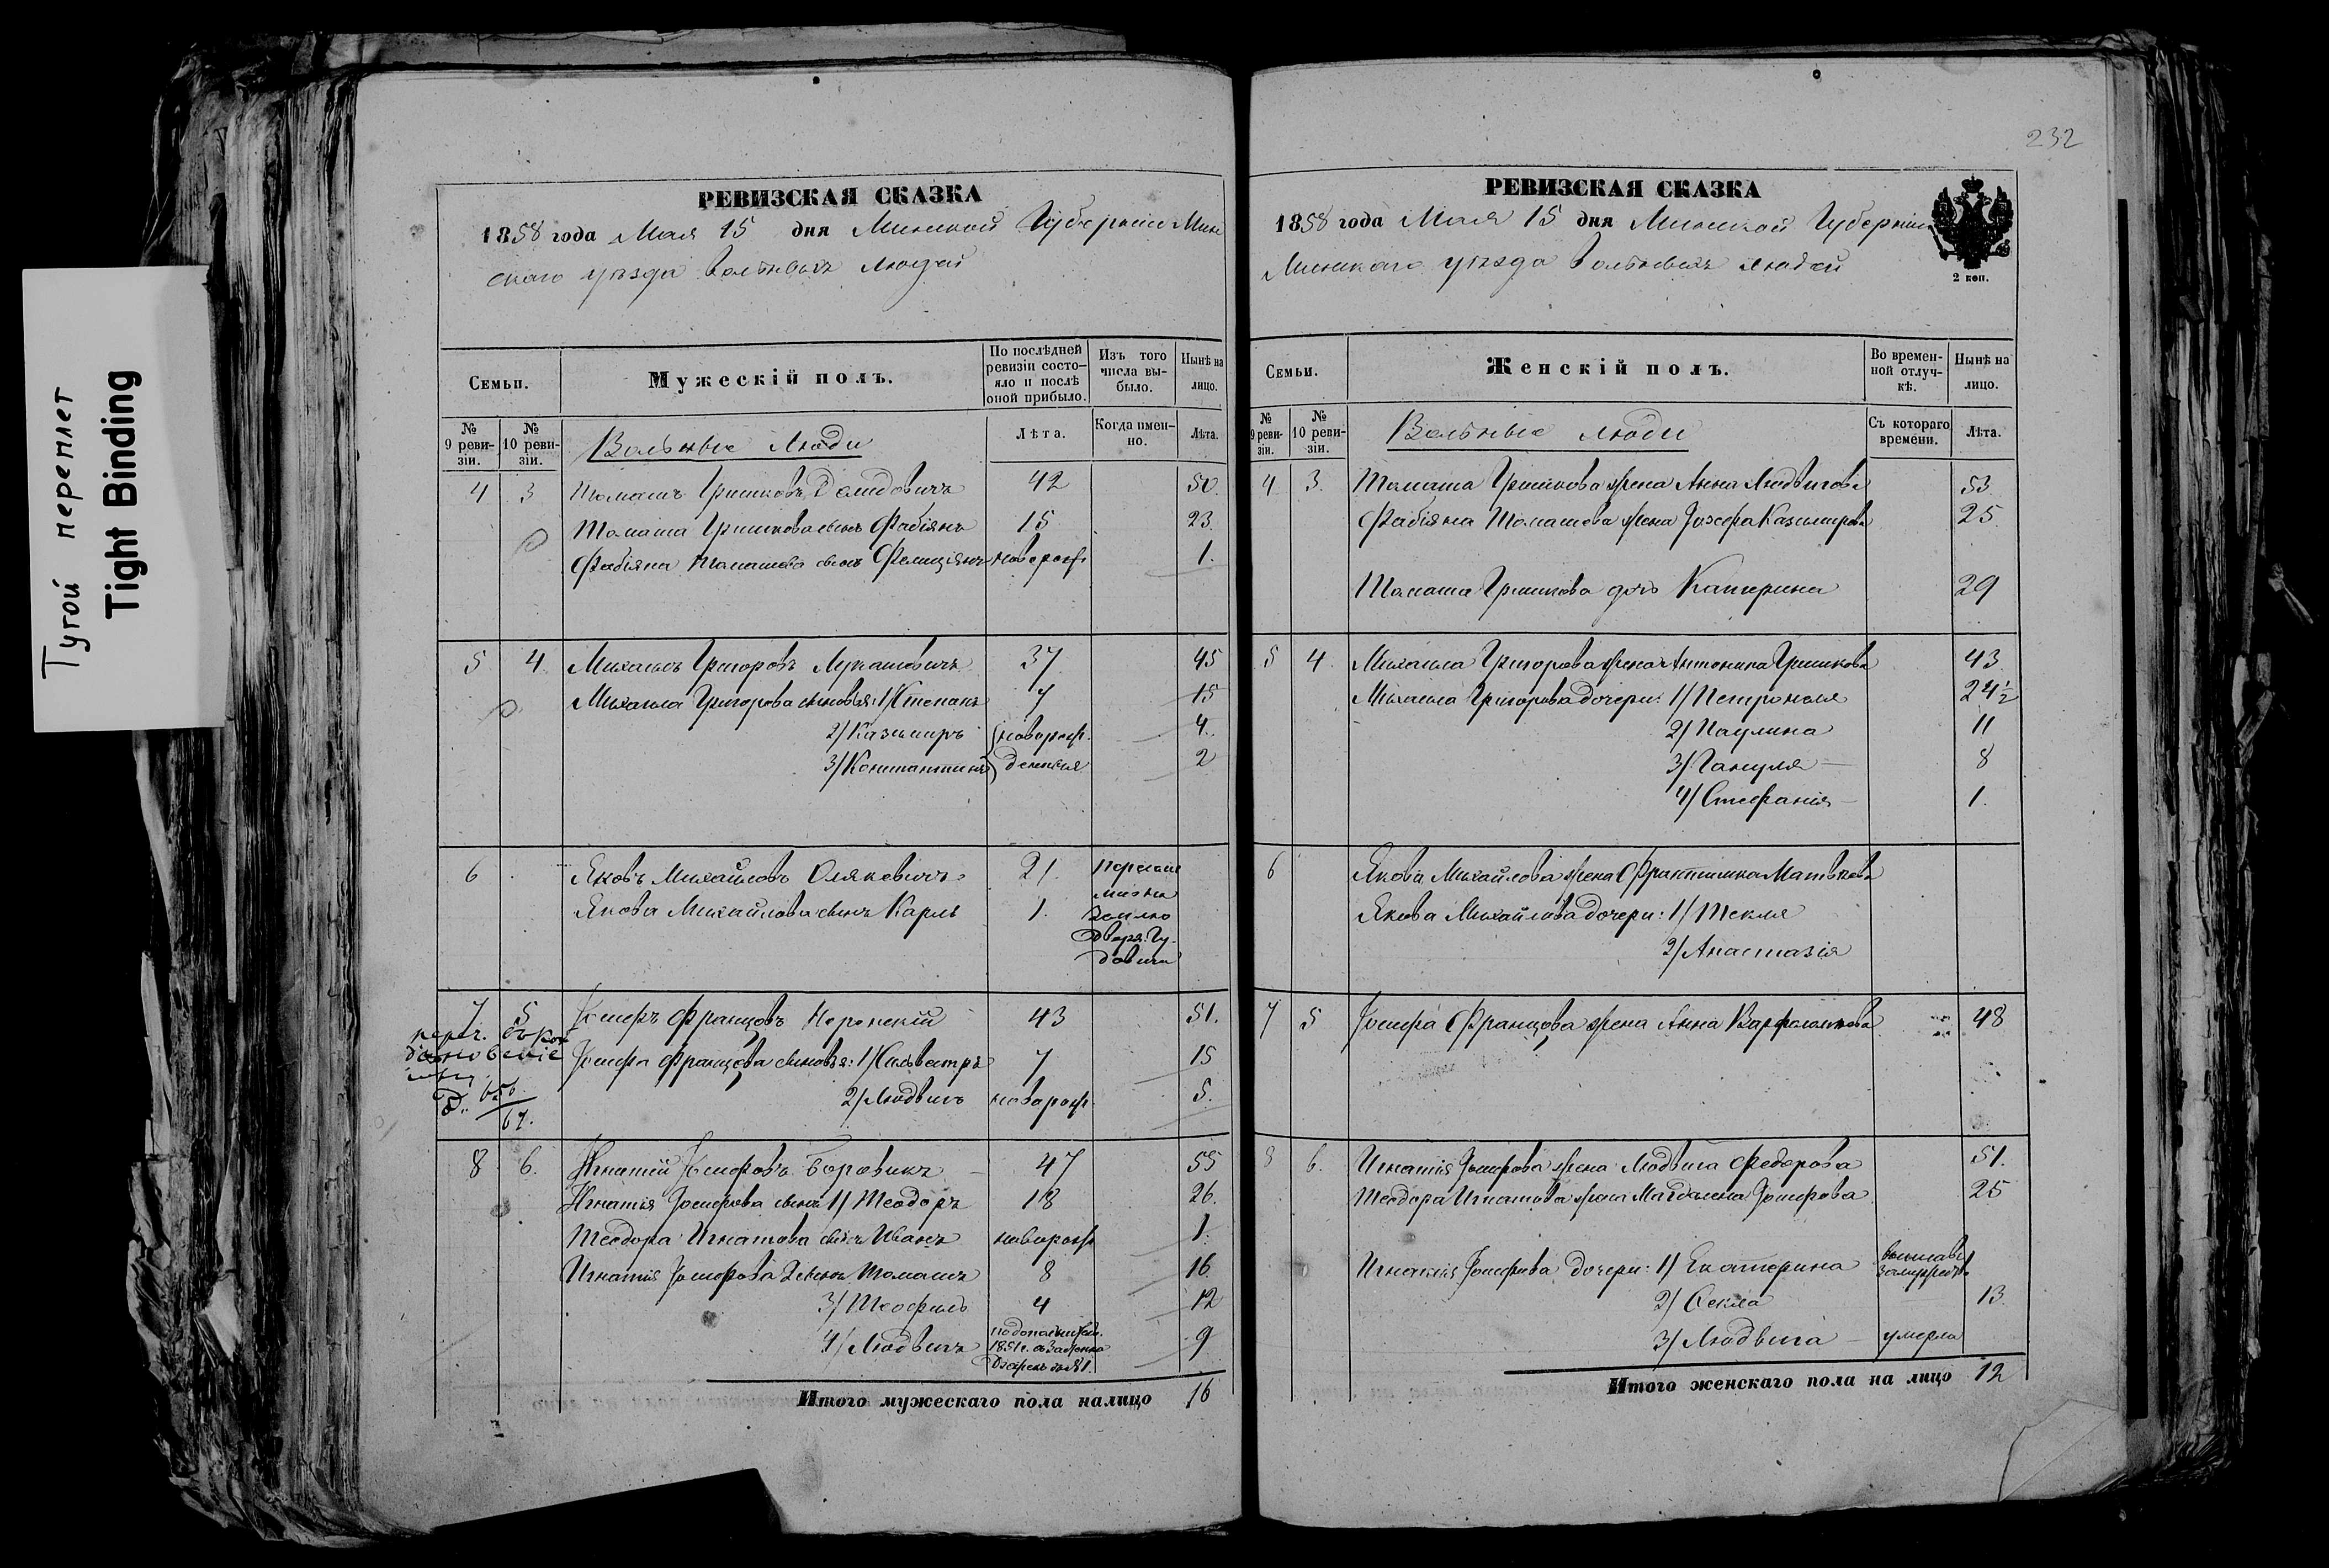 Тугой переплет
Tight Binding
РЕВИЗСКАЯ СКАЗКА
1858 года Мая 15 дня Минской Губернии Мин
скаго уѣзда Вольныхъ Людей
Семьи.
Мужескій полъ.
По послѣдней ревизіи состо-
яло и послѣ оной прибыло.
Изъ того числа вы-
было.
Нынѣ на лицо.
№ 9 реви-
зіи.
№ 10 реви-
зіи.
Вольные Люди
Лѣта.
Когда имен-
но.
Лѣта.
4 3 Томашъ Гришковъ Демидовичъ 42 50.
Томаша Гришкова сынъ Фабіянъ 15 23
Фабіяна Томашева сынъ Фелиціянъ новорож 1.
5 4. Михаилъ Григоровъ Лукашовичъ 37 45
Михаила Григорова сыновья: 1/ Степанъ 7 15
2/ Казимиръ новорож. 4.
3/ Константинъ денныя 2
6 Яковъ Михайловъ Олякевичъ 21.
Якова Михайлова сынъ Карлъ 1. землю
7 5 Іосифъ Францовъ Неронскій 43 51.
Іосифа Францова сыновья: 1/ Сильвестръ 7 15
2/ Людвигъ новорож. 5.
8 6. Игнатій Іосифовъ Боровикъ 47 55
Игнатія Іосифова сынъ 1/ Теодоръ 18 26.
Теодора Игнатова сынъ Иванъ новорож 1.
Игнатія Іосифова 2 сынъ Томашъ 8 16
3/ Теофиль 4 12
4/ Людвигъ 1851г. 9
Итого мужескаго пола налицо 16
232
РЕВИЗСКАЯ СКАЗКА
1858 года Мая 15 дня Минской Губерніи
Минскаго уѣзда Вольныхъ людей
2 коп.
Семьи.
Женскій полъ.
Во времен-
ной отлуч-
кѣ.
Нынѣ на лицо.
№ 9 реви-
зіи.
№ 10 реви-
зіи.
Вольные люди
Съ котораго времени.
Лѣта.
4 3. Томаша Гришкова жена Анна Людвигова 53
Фабіяна Томашева жена Іозефа Казимирова 25
Томаша Гришкова дочь Катерина 29
5 4. Михаила Григорова жена Антонина Гришкова 43
Михаила Григорова дочери: 1/ Петронеля 24½
2/ Паулина 11
3/ Гануля 8
4/ Стефанія 1.
6 Якова Михайлова жена Франтишка Матвеева
Якова Михайлова дочери: 1/ Текля
2/ Анастазія
7 5 Іосифа Францова жена Анна Варфоломеева 48
8 6. Игнатія Іосифова жена Людвига Федорова 51.
Теодора Игнатова жена Магдалена Іосифова 25
Игнатія Іосифова дочери: 1/ Екатерина
2/ Текля 13.
3/ Людвига умерла
Итого женскаго пола на лицо 12